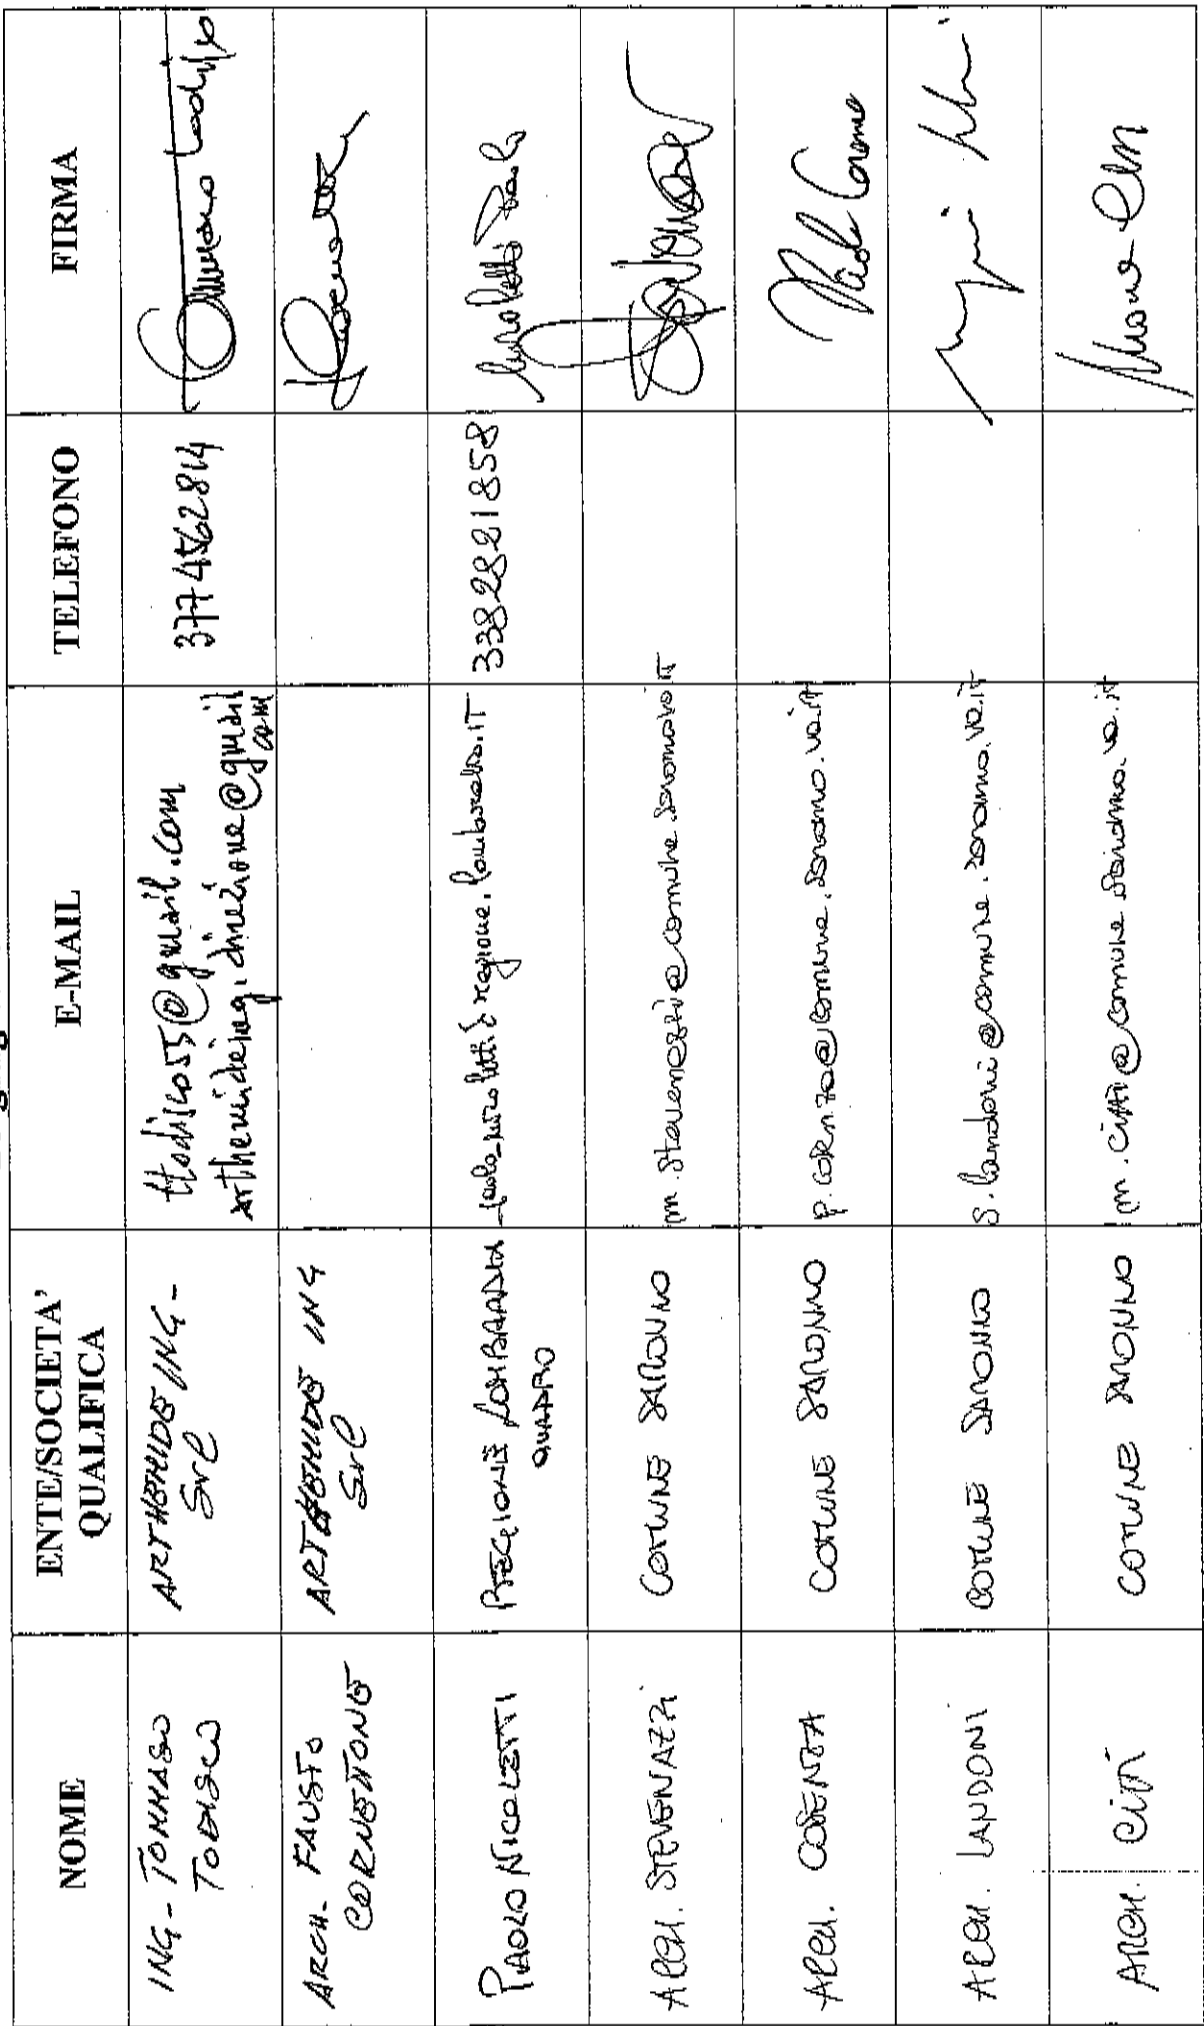 NOME
ENTE/SOCIETA'
QUALIFICA
E-MAIL
TELEFONO
FIRMA
ING- TOMMASO
TODISCO
ARTHEMIDE ING-
Srl
ttodisco55@gmail.com
arthemideing.direzione@gmail
com
3774562814
Tommaso Todisco
ARCH- FAUSTO
CORNETTONE
ARTHEMIDE ING
Srl
PAOLO NICOLETTI
REGIONE LOMBARDIA
QUADRO
paolo_nicoletti@regione.lombardia.IT
3382821858
Nicoletti Paolo
ARCH. STEVENAZZI
COMUNE SARONNO
m.stevenazzi@comune.saronno.va.it
ARCH. COSENZA
COMUNE SARONNO
p.cosenza@comune.saronno.va.it
ARCH. LANDONI
COMUNE SARONNO
s.landoni@comune.saronno.va.it
ARCH. CITTÀ
COMUNE SARONNO
m.città@comune.saronno.va.it